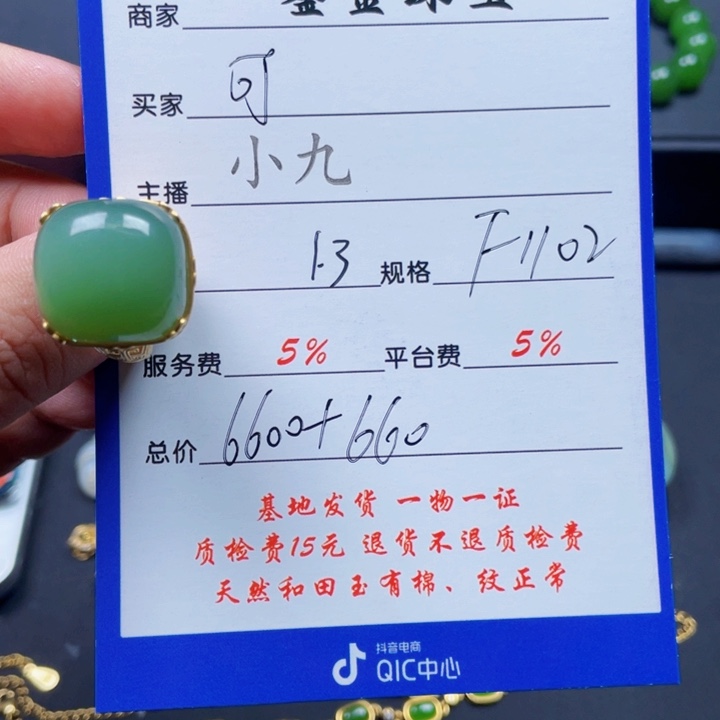 商家
买家 可
主播 小九
1.3 规格 F1102
服务费 5% 平台费 5%
总价 6600+660
基地发货 一物一证
质检费15元 退货不退质检费
天然和田玉有棉、纹正常
抖音电商
QIC中心